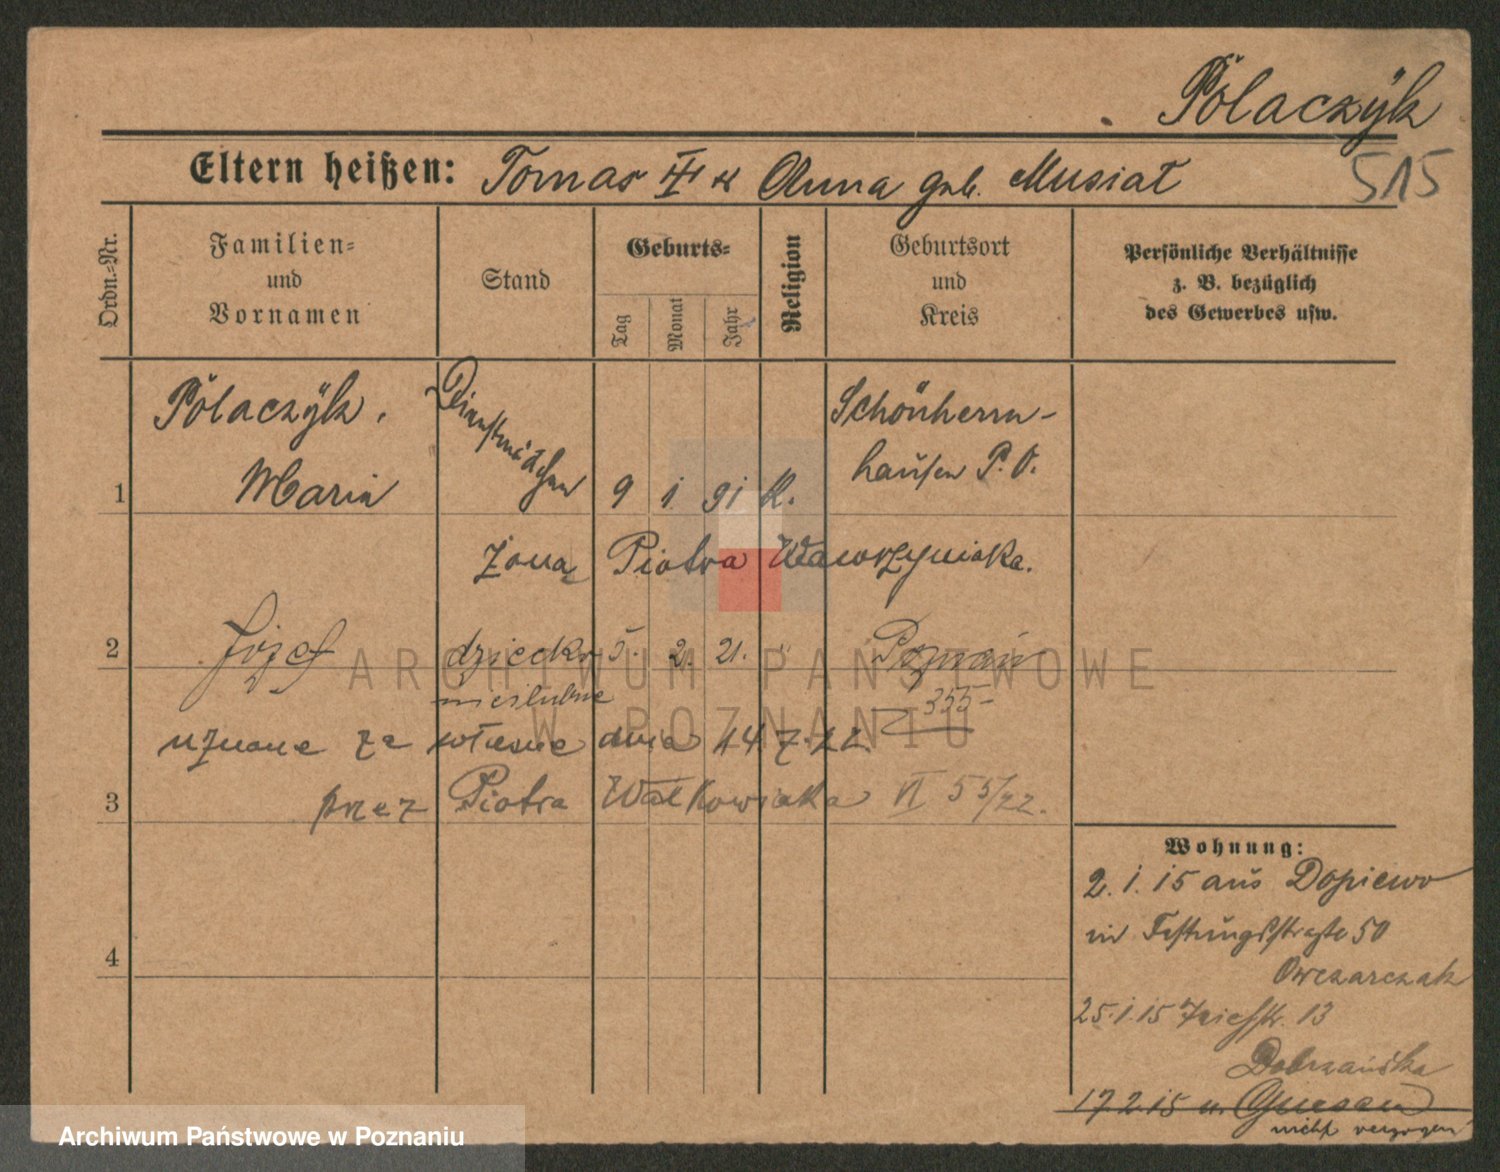 Polaczÿk
Eltern heißen: Tomas III u Anna geb. Musiał
515
Ordn.-Nr.
Familien-
und
Vornamen
Stand
Geburts-
Tag
Monat
Jahr
Religion
Geburtsort
und
Kreis
Persönliche Verhältnisse
z. B. bezüglich
des Gewerbes usw.
Polaczÿk.
1 Maria Dienstmädchen 9 1. 91 K. Schönherrn-
hausen P. O.
żoną Piotra Wawrzyniaka.
2 Józef dziecko 5. 2. 21. " Poznań
nieślubne 355
uznane za własne dnia 14 7. 22.
3 przez Piotra Walkowiaka VI 55/22.
4
Wohnung:
2. 1. 15 aus Dopiewo
in Festungsstraße 50
Owczarczak
25. 1. 15 13
Dobrzańska
17. 2. 15 n. Gnesen
nicht verzogen
ARCHIWUM PAŃSTWOWE
W POZNANIU
Archiwum Państwowe w Poznaniu